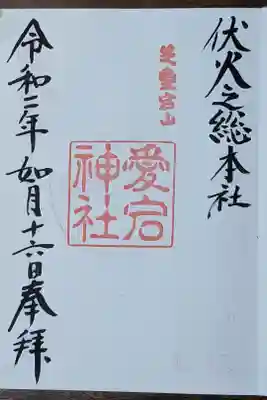 伏火之総本社
芝愛宕山
愛宕神社
令和二年如月十六日奉拝